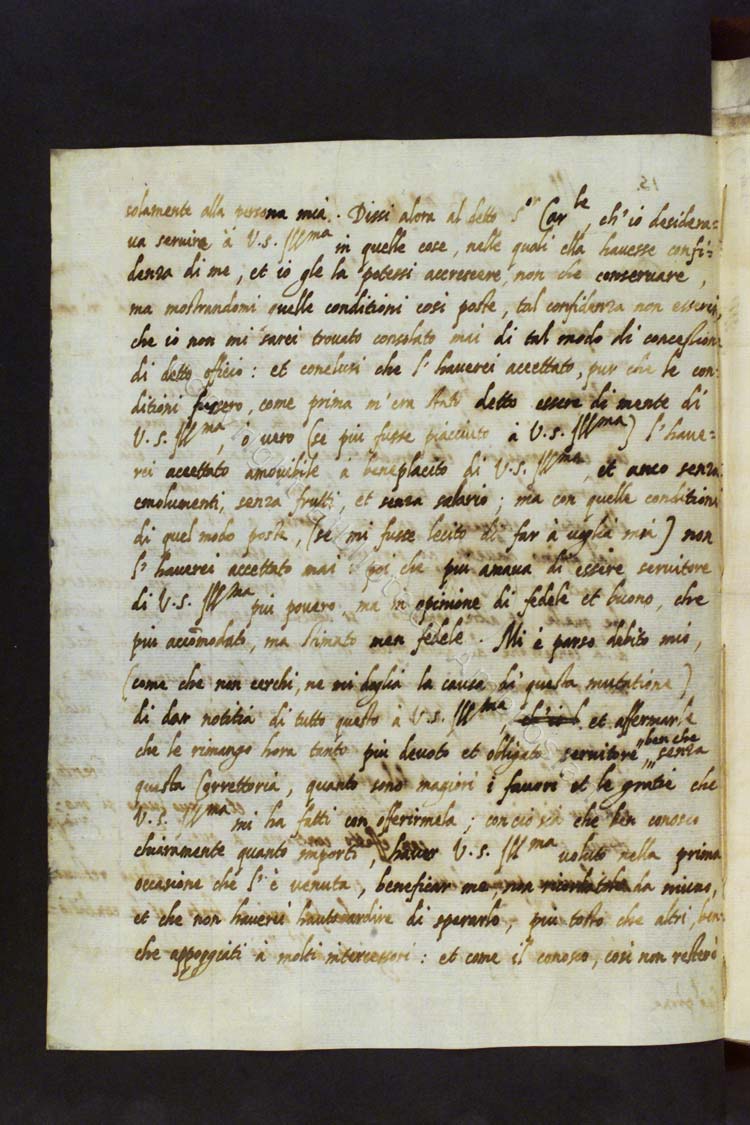 15.
solamente alla persona mia. Dissi alora al detto S.or Car.le, ch'io desidera=
va servire à V.S. Ill.ma in quelle cose, nelle quali ella havesse confi=
denza di me, et io gle la potessi accrescere, non che conservare,
ma mostrandomi quelle conditioni cosi poste, tal confidanza non esserci,
che io non mi sarei trovato consolato mai di tal modo di concessione
di detto officio: et conclusi che l'haverei accettato, pur che le con=
ditioni fussero, come prima m'era stato detto essere di mente di
V.S. Ill.ma, ò vero (se più fusse piacciuto à V.S. Ill.ma) l'have=
rei accettato amovibile à beneplacito di V.S. Ill.ma, et anco senza
emolumenti, senza frutti, et senza salario; ma con quelle conditioni
di quel modo poste, (se mi fusse lecito di far à voglia mia) non
l'haverei accettato mai: poi che più amava di essere servitore
di V.S. Ill.ma più povero, ma in opinione di fedele et buono, che
più accõmodato, ma stimato men fedele. Mi è parso debito mio,
(come che non cerchi, ne mi doglia la causa di questa mutatione)
di dar notitia di tutto questo à V.S. Ill.ma, et affermarle
che le rimango hora tanto più devoto et obligato servitore, benche senza
questa Correttoria, quanto sono magiori i favori et le gratie che
V.S. Ill.ma mi ha fatti con offerirmela; conciò sia che ben conosco
chiaramente quanto importi, haver V.S. Ill.ma voluto nella prima
occasione che l'è venuta, beneficar me non ricordatole da niuno,
et che non haverei hauto ardire di sperarlo, più tosto che altri, ben=
che appoggiati à molti intercessori: et come il conosco, cosi non resterò